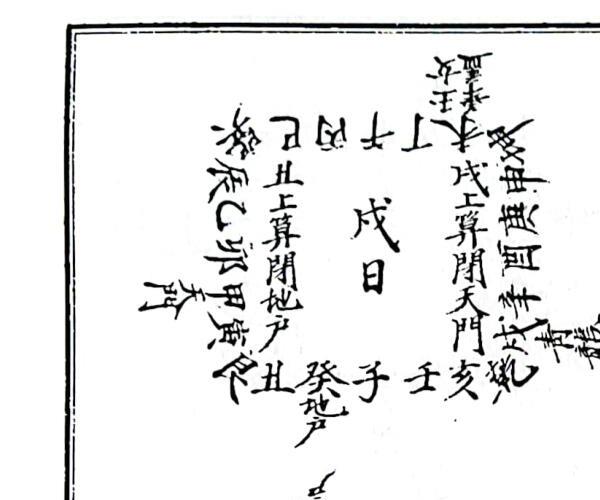 玉女
巽巳丙午丁未坤
申庚酉辛戌
青龍
戌上算閉天門
戌日
丑上算閉地户
辰乙卯甲寅
天門
艮丑癸子壬亥乾
地户
户